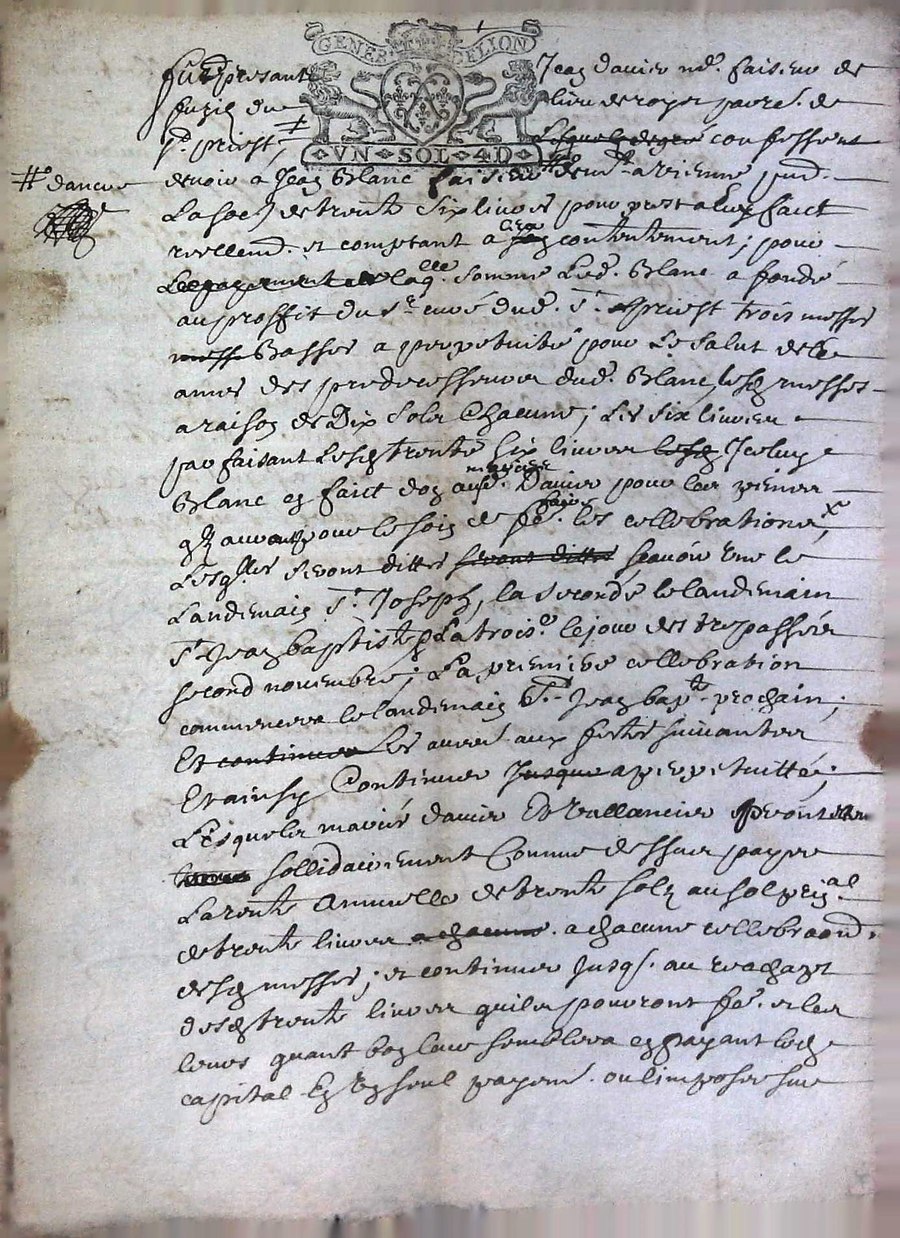 GENER DE LION
VN SOL 4D
furt presants Jean davier md. faiseur de
fuzil du lieu de royet parre. de
st. priest, confessent
devoir a Jean Blanc faiseur a vienne
#
La so de trente six livres pour prest a Eux faict
reellemt. et comptant a contentement; pour
Le payement de laqlle. somme Led. Blanc a fondé
au proffit du sr. curé dud. st. priest trois messes
messe Basses a perpetuité pour Le salut des
ames des predecesseurs dud. Blanc, lesq messes
a raison de Dix Sols Chacune; Les six livres
parfaisant Lesq trente six livres Iceluy
Blanc en faict don aud. Davier pour les peines
pour le soin de fe. les cellebrations
Lesqlles seront dittes seront dittes scavoir Une le
Landemain st. Joseph, la seconde le landemain
st. Jean baptiste & La trois.e le jour des trepassés
second novembre; La premiere cellebration
commencera le landemain st. Jean bapt. prochain;
Et continuer Les aux festes suivantes
Et ainsy Continuer Jusque a perpetuitté;
Lesquels mariés davier Et vallancier
sollidairement Comme dessus payer
La rente Annuelle de trente solz au sol prinal
de trente livres a chacune. a chacune cellebraon
desq messes; et continuer Jusq. au reachapt
desq trente livres quils pourront fe. et les
leurs quant bon leur semblera en payant led
capital En Un seul payemt. ou limposer sur